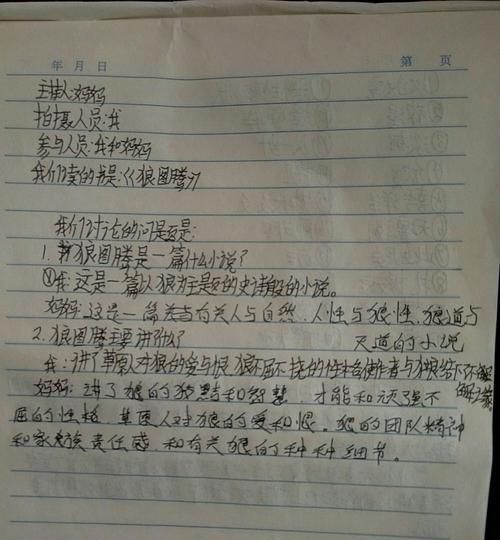 年 月 日 第 页
主持人:妈妈
拍摄人员:我
参与人员:我和妈妈
我们读的书是:《狼图腾》
我们讨论的问题是:
1.狼图腾是一篇什么小说?
①我:这是一篇以狼为主题的史诗般的小说。
妈妈:这是一篇关与有关人与自然、人性与狼性、狼道与
天道的小说
2.狼图腾主要讲什么?
我:讲了草原人对狼的爱与恨 狼不屈不挠的性格使作者与狼结下不解
的缘
妈妈:讲了狼的狡黠和智慧、才能和顽强不
屈的性格,草原人对狼的爱和恨。狼的团队精神
和家族责任感,和有关狼的种种细节。